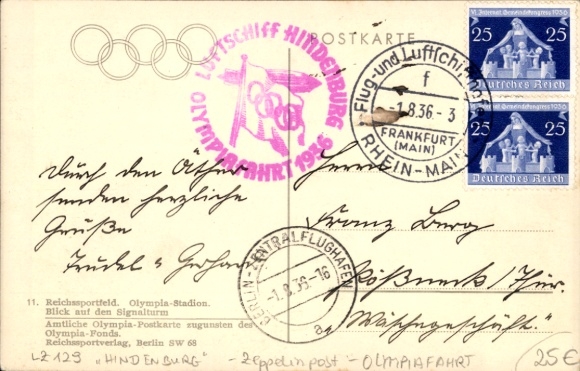 LUFTSCHIFF HINDENBURG
OLYMPIAFAHRT 1936
POSTKARTE
Flug- und Luftschiffhafen
f
-1.8.36.-3
FRANKFURT
(MAIN)
RHEIN-MAIN
VI. Internat. Gemeindekongress 1936
25 25
Deutsches Reich
VI. Internat. Gemeindekongress 1936
25 25
Deutsches Reich
Durch den Äther
senden herzliche
Grüße
Trudel u Gerhard
Herrn
Franz Berg
Pößneck / Thür.
"Wäschegeschäft".
BERLIN-ZENTRALFLUGHAFEN
-1.8.36.-16
a
11. Reichssportfeld. Olympia-Stadion.
Blick auf den Signalturm
Amtliche Olympia-Postkarte zugunsten des
Olympia-Fonds.
Reichssportverlag, Berlin SW 68
LZ 129 "HINDENBURG" - Zeppelinpost - OLYMPIAFAHRT
25€